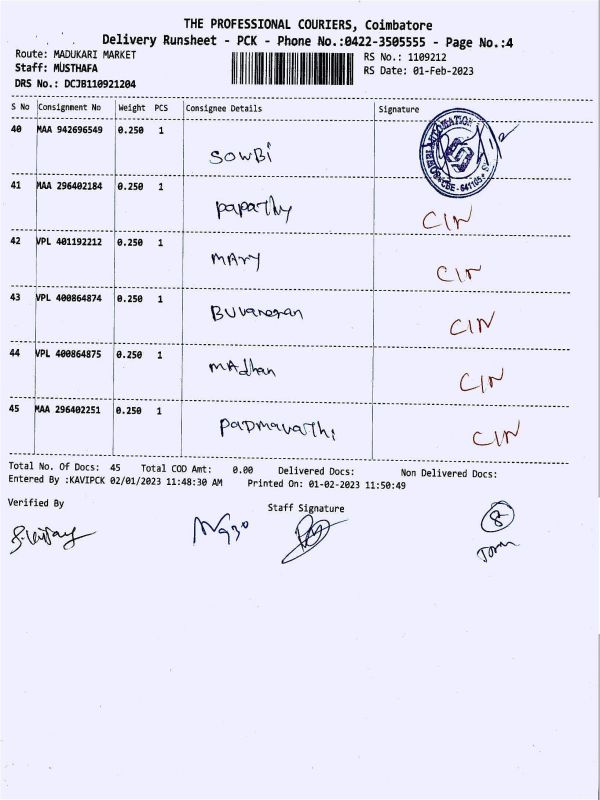 THE PROFESSIONAL COURIERS, Coimbatore
Delivery Runsheet - PCK - Phone No.:0422-3505555 - Page No.:4
Route: MADUKARI MARKET
RS No.: 1109212
Staff: MUSTHAFA
RS Date: 01-Feb-2023
DRS No.: DCJB110921204
S No Consignment No Weight PCS Consignee Details Signature
40 MAA 942696549 0.250 1 SOWBi
41 MAA 296402184 0.250 1 PaPaThy CIN
42 VPL 401192212 0.250 1 MARY CIN
43 VPL 400864874 0.250 1 BUvaneran CIN
44 VPL 400864875 0.250 1 MAdhan CIN
45 MAA 296402251 0.250 1 PADMavaThi CIN
Total No. Of Docs: 45 Total COD Amt: 0.00 Delivered Docs: Non Delivered Docs:
Entered By :KAVIPCK 02/01/2023 11:48:30 AM Printed On: 01-02-2023 11:50:49
Verified By
Staff Signature
8